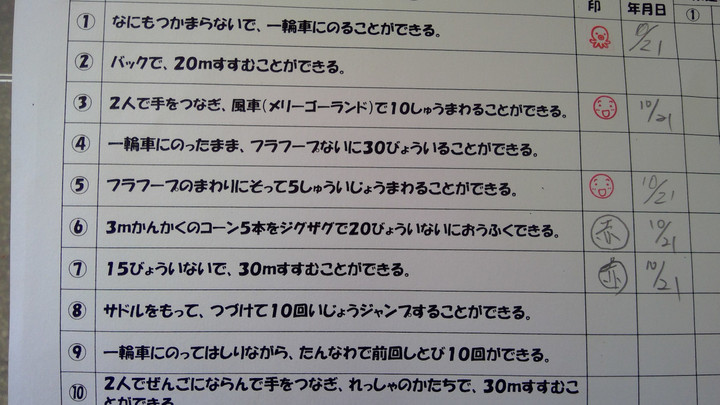 印 年月日 ①
① なにもつかまらないで、一輪車にのることができる。 10/21
② バックで、20mすすむことができる。
③ 2人で手をつなぎ、風車(メリーゴーランド)で10しゅうまわることができる。 10/21
④ 一輪車にのったまま、フラフープないに30びょういることができる。
⑤ フラフープのまわりにそって5しゅういじょうまわることができる。 10/21
⑥ 3mかんかくのコーン5本をジグザグで20びょういないにおうふくできる。 赤 10/21
⑦ 15びょういないで、30mすすむことができる。 赤 10/21
⑧ サドルをもって、つづけて10回いじょうジャンプすることができる。
⑨ 一輪車にのってはしりながら、たんなわで前回しとび10回ができる。
⑩ 2人でぜんごにならんで手をつなぎ、れっしゃのかたちで、30mすすむこ
とができる。